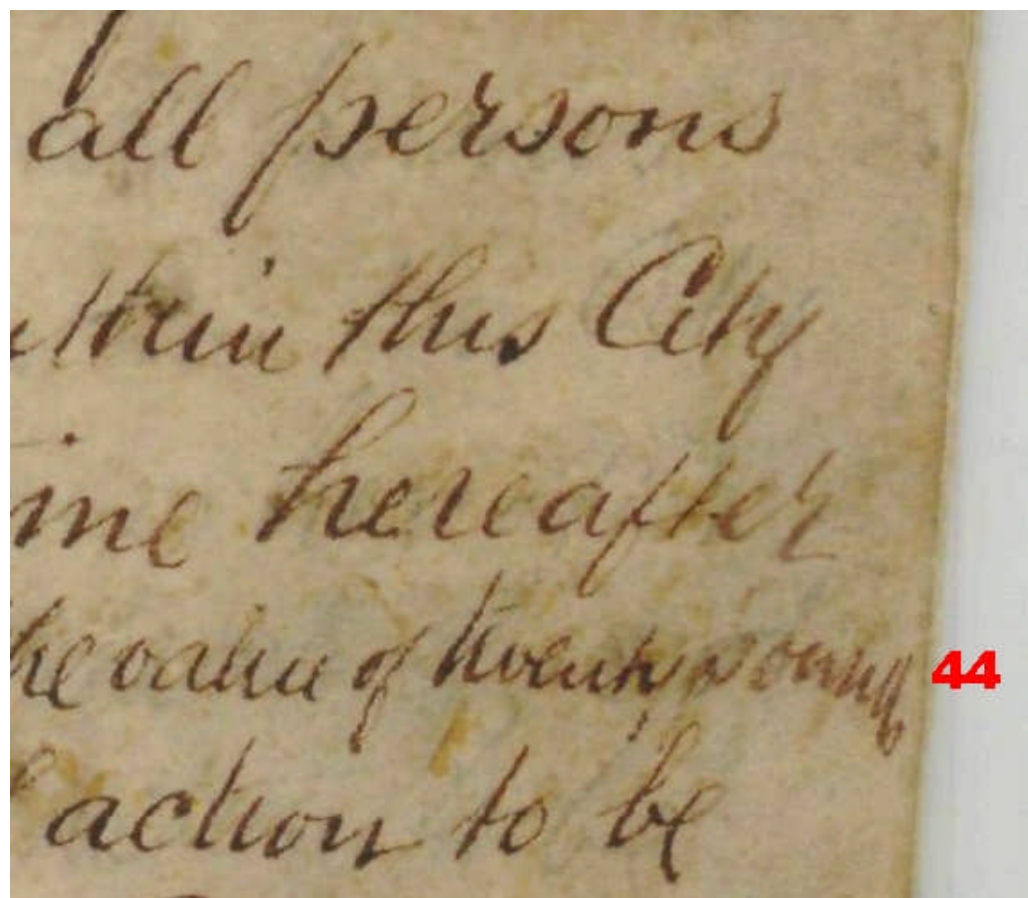 all persons
within this City
ime hereafter
he value of twenty pounds 44
action to be